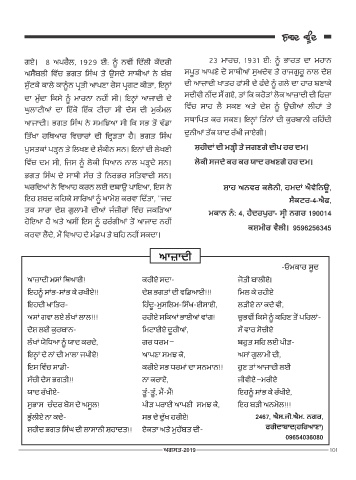 ਗਏ। 8 ਅਪਰੈਲ, 1929 ਈ: ਨੂੰ ਨਵੀਂ ਦਿੱਲੀ ਕੇਂਦਰੀ
ਅਸੈਂਬਲੀ ਵਿੱਚ ਭਗਤ ਸਿੰਘ ਤੇ ਉਸਦੇ ਸਾਥੀਆਂ ਨੇ ਬੰਬ
ਸੁੱਟਕੇ ਕਾਲੇ ਕਾਨੂੰਨ ਪ੍ਰਤੀ ਆਪਣਾ ਰੋਸ ਪ੍ਰਗਟ ਕੀਤਾ, ਇਨ੍ਹਾਂ
ਦਾ ਮੁੱਦਾ ਕਿਸੇ ਨੂੰ ਮਾਰਨਾ ਨਹੀਂ ਸੀ। ਇਨ੍ਹਾਂ ਆਜ਼ਾਦੀ ਦੇ
ਘੁਲਾਟੀਆਂ ਦਾ ਇੱਕੋ ਇੱਕ ਟੀਚਾ ਸੀ ਦੇਸ਼ ਦੀ ਮੁਕੰਮਲ
ਆਜ਼ਾਦੀ। ਭਗਤ ਸਿੰਘ ਨੇ ਸਮਝਿਆ ਸੀ ਕਿ ਸਭ ਤੋਂ ਵੱਡਾ
ਤਿੱਖਾ ਹਥਿਆਰ ਵਿਚਾਰਾਂ ਦੀ ਦ੍ਰਿੜਤਾ ਹੈ। ਭਗਤ ਸਿੰਘ
ਪੁਸਤਕਾਂ ਪੜ੍ਹਨ ਤੇ ਲਿਖਣ ਦੇ ਸ਼ੌਕੀਨ ਸਨ। ਇਨਾਂ ਦੀ ਲੇਖਣੀ
ਵਿੱਚ ਦਮ ਸੀ, ਜਿਸ ਨੂੰ ਲੋਕੀ ਧਿਆਨ ਨਾਲ ਪੜ੍ਹਦੇ ਸਨ।
ਭਗਤ ਸਿੰਘ ਦੇ ਸਾਥੀ ਸੱਚ ਤੇ ਨਿਰਭਰ ਸਤਿਵਾਦੀ ਸਨ।
ਘਰਦਿਆਂ ਨੇ ਵਿਆਹ ਕਰਨ ਲਈ ਦਬਾਉ ਪਾਇਆ, ਇਸ ਨੇ
ਇਹ ਸ਼ਬਦ ਕਹਿਕੇ ਸਾਰਿਆਂ ਨੂੰ ਖਾਮੋਸ਼ ਕਰਵਾ ਦਿੱਤਾ, ''ਜਦ
ਤਕ ਸਾਰਾ ਦੇਸ਼ ਗੁਲਾਮੀ ਦੀਆਂ ਜੰਜ਼ੀਰਾਂ ਵਿੱਚ ਜਕੜਿਆ
ਹੋਇਆ ਹੈ ਅਤੇ ਅਸੀਂ ਇਸ ਨੂੰ ਫਰੰਗੀਆਂ ਤੋਂ ਆਜ਼ਾਦ ਨਹੀਂ
ਕਰਵਾ ਲੈਂਦੇ, ਮੈਂ ਵਿਆਹ ਦੇ ਮੰਡਪ ਤੇ ਬਹਿ ਨਹੀਂ ਸਕਦਾ।
23 ਮਾਰਚ, 1931 ਈ: ਨੂੰ ਭਾਰਤ ਦਾ ਮਹਾਨ
ਸਪੂਤ ਆਪਣੇ ਦੋ ਸਾਥੀਆਂ ਸੁਖਦੇਵ ਤੇ ਰਾਜਗੁਰੂ ਨਾਲ ਦੇਸ਼
ਦੀ ਆਜ਼ਾਦੀ ਖ਼ਾਤਰ ਫਾਂਸੀ ਦੇ ਫੰਦੇ ਨੂੰ ਗਲੇ ਦਾ ਹਾਰ ਬਣਾਕੇ
ਸਦੀਵੀ ਨੀਂਦ ਸੌਂ ਗਏ, ਤਾਂ ਕਿ ਕਰੋੜਾਂ ਲੋਕ ਆਜ਼ਾਦੀ ਦੀ ਫਿਜ਼ਾ
ਵਿੱਚ ਸਾਹ ਲੈ ਸਕਣ ਅਤੇ ਦੇਸ਼ ਨੂੰ ਉਚੀਆਂ ਲੀਹਾਂ ਤੇ
ਸਥਾਪਿਤ ਕਰ ਸਕਣ। ਇਨ੍ਹਾਂ ਤਿੰਨਾਂ ਦੀ ਕੁਰਬਾਨੀ ਰਹਿੰਦੀ
ਦੁਨੀਆਂ ਤੱਕ ਯਾਦ ਰੱਖੀ ਜਾਏਗੀ।
ਸ਼ਹੀਦਾਂ ਦੀ ਮੜ੍ਹੀ ਤੇ ਜਗਣਗੇ ਦੀਪ ਹਰ ਦਮ।
ਲੋਕੀ ਸਜਦੇ ਕਰ ਕਰ ਯਾਦ ਰਖਣਗੇ ਹਰ ਦਮ।
ਸ਼ਾਹ ਅਨਵਰ ਕਲੋਨੀ, ਹਮਦਾਂ ਐਵੇਨਿਊ,
ਸੈਕਟਰ-4-ਐਫ,
ਮਕਾਨ ਨੰ: 4, ਹੈਦਰਪੁਰਾ- ਸ੍ਰੀ ਨਗਰ 190014
ਕਸ਼ਮੀਰ ਵੈਲੀ। 9596256345
ਆਜ਼ਾਦੀ
-ਓਮਕਾਰ ਸੂਦ
ਆਜ਼ਾਦੀ ਮਸਾਂ ਥਿਆਈ!
ਇਹਨੂੰ ਸਾਂਭ-ਸਾਂਭ ਕੇ ਰਖੀਏ!!
ਇਹਦੀ ਖਾਤਿਰ-
ਅਸਾਂ ਹਵਾ ਲਏ ਲੱਖਾਂ ਲਾਲ!!!
ਦੇਸ਼ ਲਈ ਕੁਰਬਾਨ-
ਲੱਖਾਂ ਯੋਧਿਆ ਨੂੰ ਯਾਦ ਕਰਦੇ,
ਇਨ੍ਹਾਂ ਦੇ ਨਾਂ ਦੀ ਮਾਲਾ ਜਪੀਏ!
ਇਸ ਵਿੱਚ ਸਾਡੀ-
ਸੱਚੀ ਦੇਸ਼ ਭਗਤੀ!!
ਯਾਦ ਰੱਖੀਏ-
ਸੁਭਾਸ਼ ਚੰਦਰ ਬੋਸ ਦੇ ਅਸੂਲ!
ਭੁੱਲੀਏ ਨਾ ਕਦੇ-
ਸ਼ਹੀਦ ਭਗਤ ਸਿੰਘ ਦੀ ਲਾਸਾਨੀ ਸ਼ਹਾਦਤ!!
ਕਰੀਏ ਸਦਾ-
ਦੇਸ਼ ਭਗਤਾਂ ਦੀ ਵਡਿਆਈ!!!
ਹਿੰਦੂ-ਮੁਸਲਿਮ-ਸਿੱਖ-ਈਸਾਈ,
ਰਹੀਏ ਸਕਿਆਂ ਭਾਈਆਂ ਵਾਂਗ!
ਮਿਟਾਈਏ ਦੂਰੀਆਂ,
ਹਰ ਧਰਮ-
ਆਪਣਾ ਸਮਝ ਕੇ,
ਕਰੀਏ ਸਭ ਧਰਮਾਂ ਦਾ ਸਨਮਾਨ!!
ਨਾ ਕਰਾਏ,
ਤੂੰ-ਤੂੰ, ਮੈਂ-ਮੈਂ!
ਪੀੜ ਪਰਾਈ ਆਪਣੀ ਸਮਝ ਕੇ,
ਸਭ ਦੇ ਦੁੱਖ ਹਰੀਏ!
ਏਕਤਾ ਅਤੇ ਮੁਹੱਬਤ ਦੀ-
ਜੋਤੀ ਬਾਲੀਏ।
ਮਿਲ ਕੇ ਰਹੀਏ
ਲੜੀਏ ਨਾ ਕਦੇ ਵੀ,
ਚੁਭਵੀਂ ਕਿਸੇ ਨੂੰ ਕਹਿਣ ਤੋਂ ਪਹਿਲਾਂ-
ਸੌ ਵਾਰ ਸੋਚੀਏ
ਬਹੁਤ ਸਹਿ ਲਏ ਪੀੜ-
ਅਸਾਂ ਗੁਲਾਮੀ ਦੀ,
ਹੁਣ ਤਾਂ ਆਜ਼ਾਦੀ ਲਈ
ਜੀਵੀਏ -ਮਰੀਏ
ਇਹਨੂੰ ਸਾਂਭ ਕੇ ਰੱਖੀਏ,
ਇਹ ਬੜੀ ਅਨਮੋਲ!!!
2467, ਐਸ.ਜੀ.ਐਮ. ਨਗਰ,
ਫਰੀਦਾਬਾਦ(ਹਰਿਆਣਾ)
09654036080
ਅਗਸਤ-2019
101